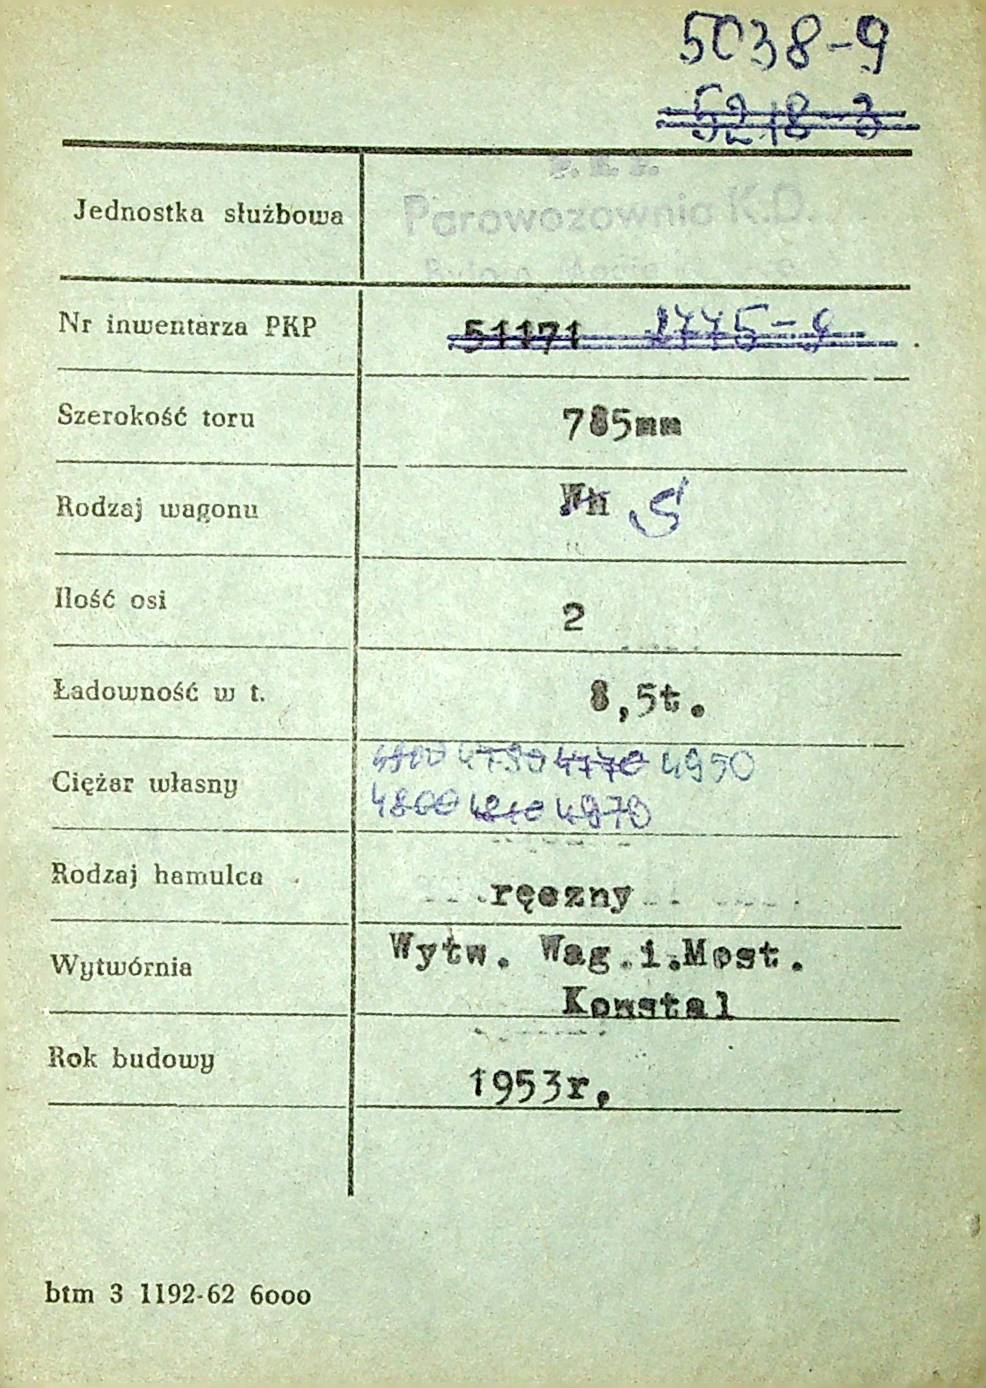 5038-9
5218-3
P. K. P.
Jednostka służbowa Parowozownia K.D.
Nr inwentarza PKP 51171 1775-9
Szerokość toru 785mm
Rodzaj wagonu Wh S
Ilość osi 2
Ładowność w t. 8,5t.
4780 4770 4950
Ciężar własny
4800 4810 4970
Rodzaj hamulca ręczny
Wytwórnia Wytw. Wag.i.Most.
Konstal
Rok budowy 1953r.
btm 3 1192-62 6000